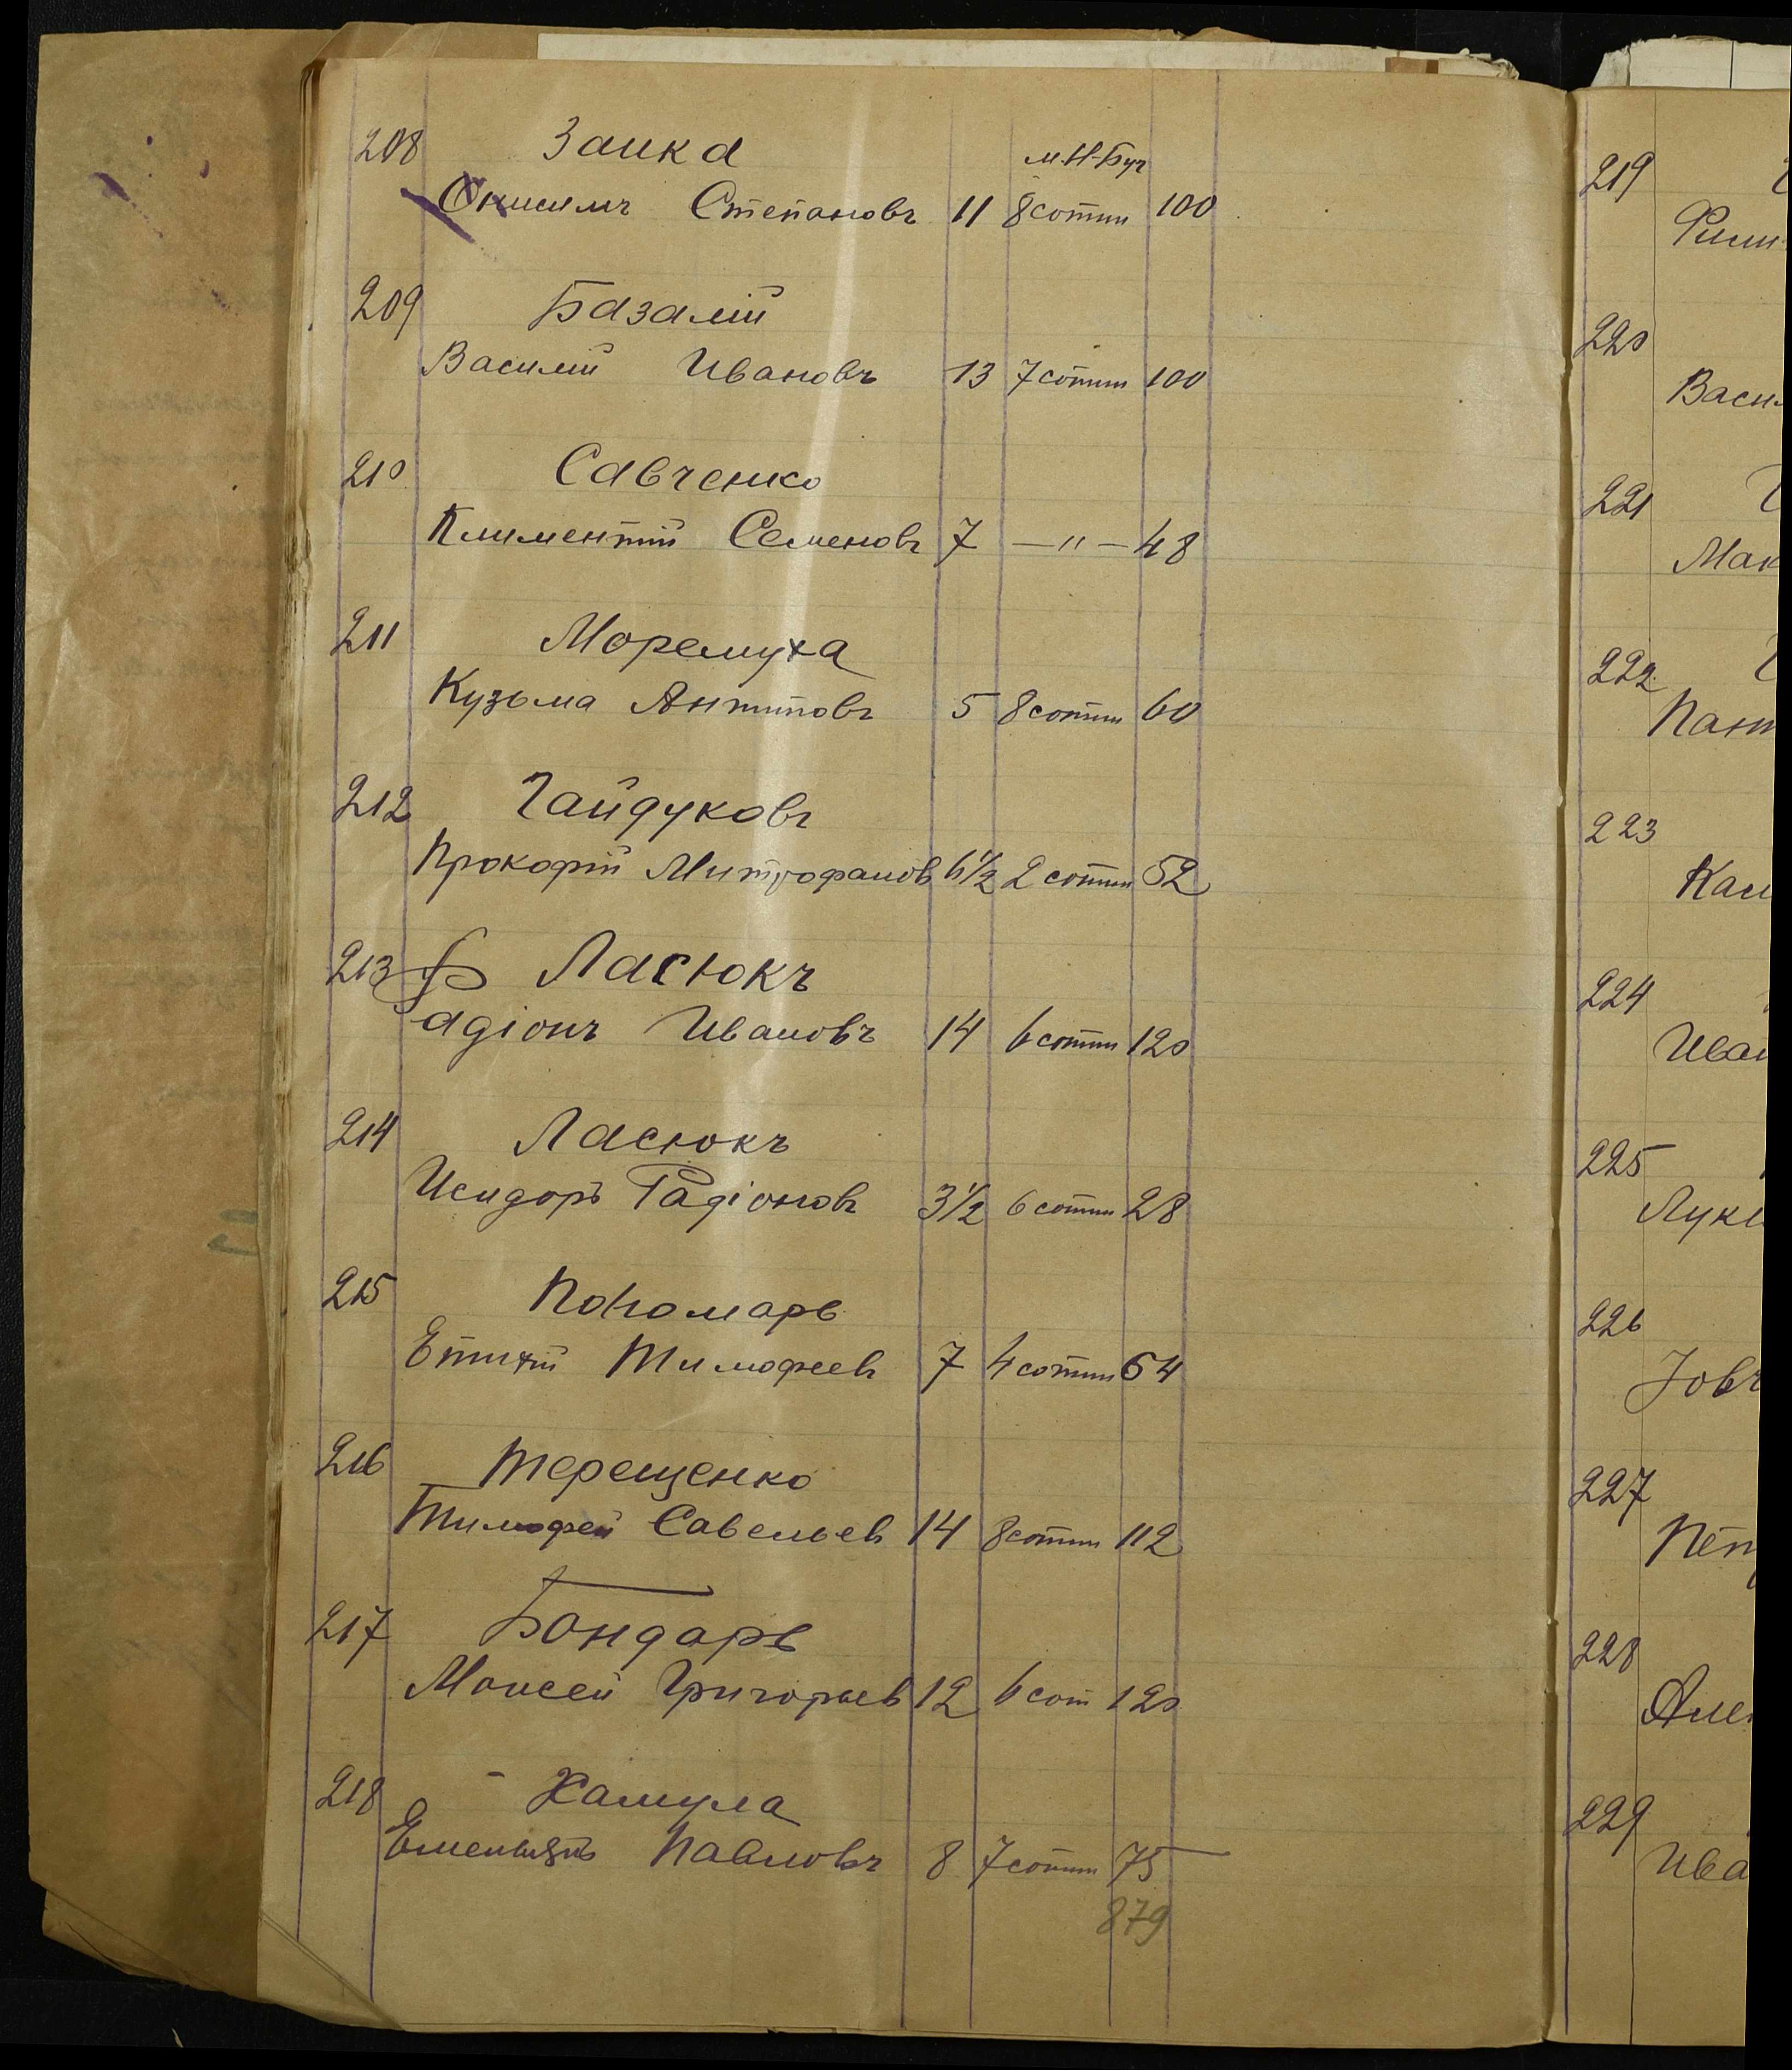 208 Заика м. Н-Буг
Онисимъ Степановъ 11 8 сотни 100
209 Базалій
Василій Ивановъ 13 7 сотни 100
210 Савченко
Климентій Семеновъ 7 —"— 48
211 Моремуха
Кузьма Антиповъ 5 8 сотни 60
212 Гайдуковъ
Прокофій Митрофановъ 6½ 2 сотни 52
213 Ласюкъ
Радіонъ Ивановъ 14 6 сотни 120
214 Ласюкъ
Исидоръ Радіоновъ 3½ 6 сотни 28
215 Пономарь
Епихій Тимофеевъ 7 4 сотни 64
216 Терещенко
Тимофей Савельевъ 14 8 сотни 112
217 Бондарь
Моисей Григорьев 12 6 сот 120
218 Хамула
Емельянъ Павловъ 8 7 сотни 75
879
219
Фили
220
Васи
221
Мак
222
Пант
223
224
Иван
225
Луки
226
Іовъ
227
Пет
228
Але
229
Ива